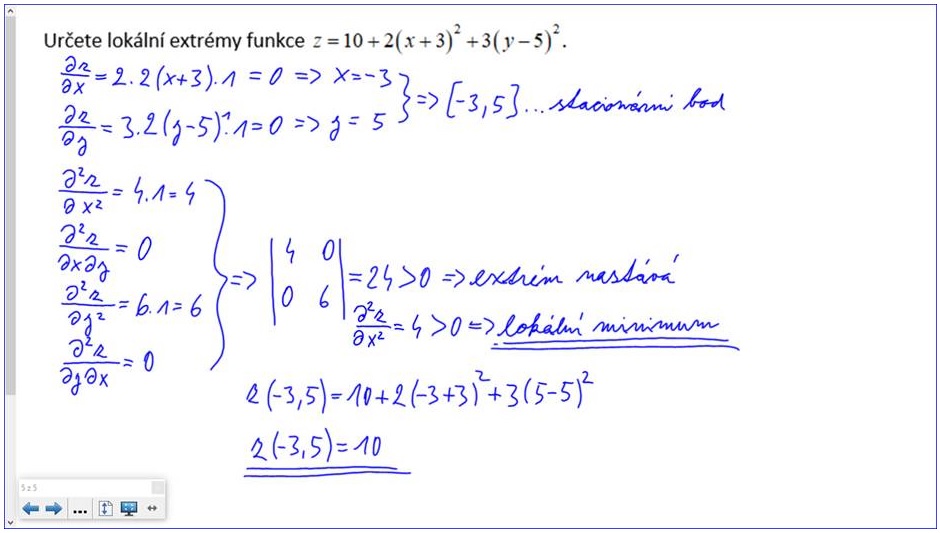 Určete lokální extrémy funkce z = 10 + 2(x + 3)² + 3(y − 5)².
∂z/∂x = 2.2(x+3).1 = 0 => x = -3
∂z/∂y = 3.2(y-5)¹.1 = 0 => y = 5
} => [-3,5] ... stacionární bod
∂²z/∂x² = 4.1 = 4
∂²z/∂x∂y = 0
∂²z/∂y² = 6.1 = 6
∂²z/∂y∂x = 0
} => |4 0|
|0 6| = 24 > 0 => extrém nastává
∂²z/∂x² = 4 > 0 => lokální minimum
z(-3,5) = 10+2(-3+3)²+3(5-5)²
z(-3,5) = 10
5 z 5